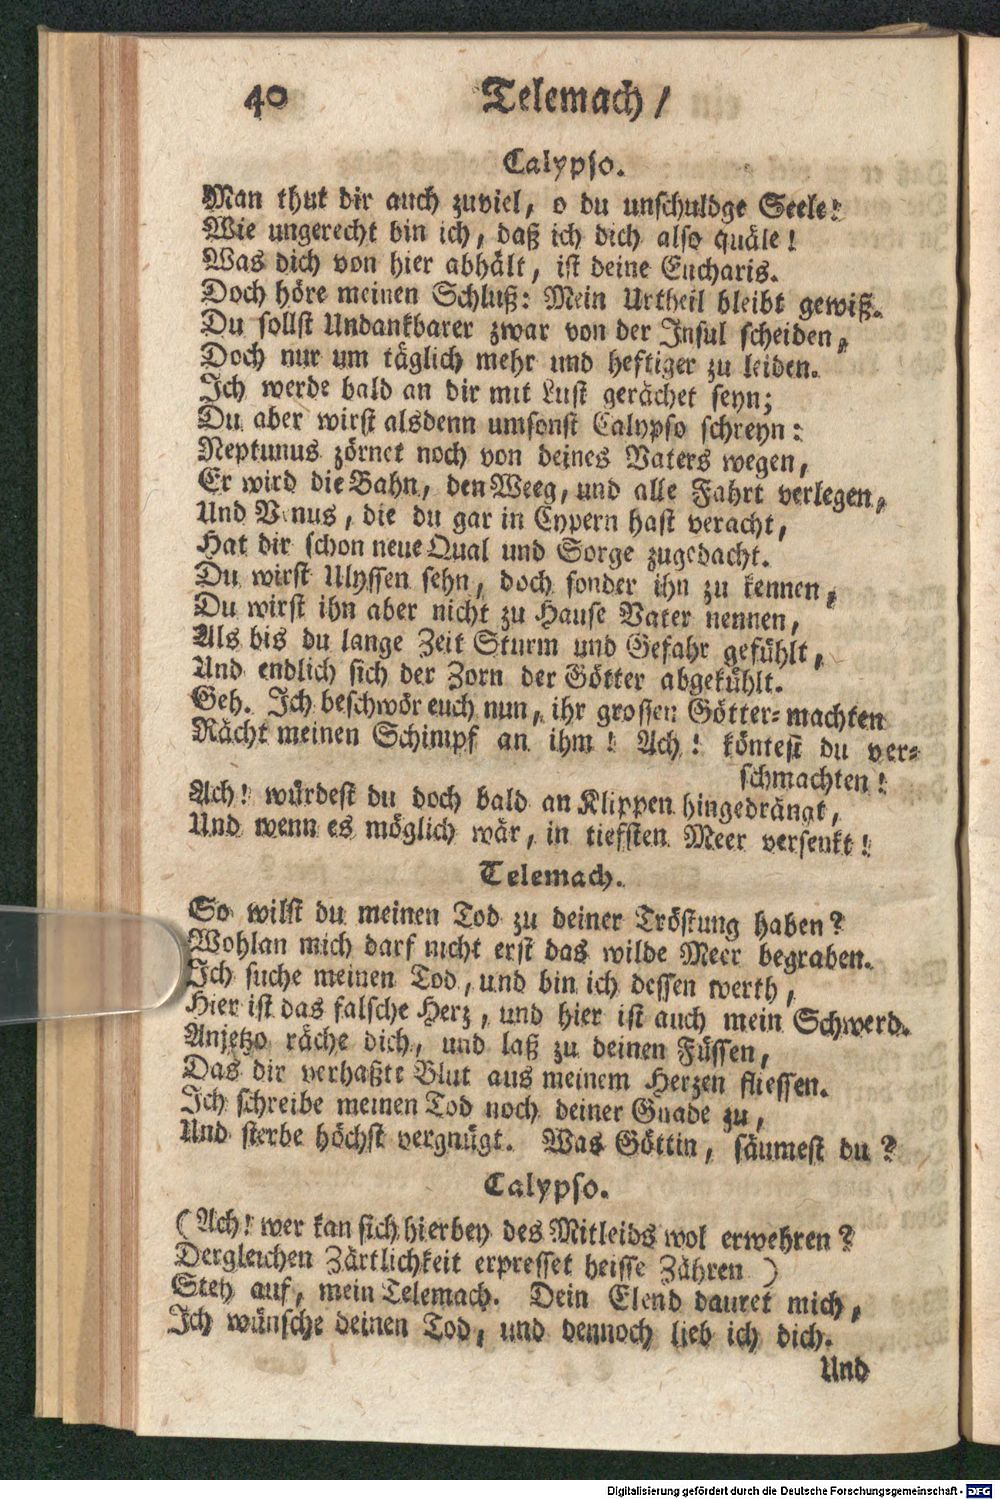 40 Telemach /
Calypso.
Man thut dir auch zuviel, o du unschuldge Seele!
Wie ungerecht bin ich, daß ich dich also quäle!
Was dich von hier abhält, ist deine Eucharis.
Doch höre meinen Schluß: Mein Urtheil bleibt gewiß.
Du sollst Undankbarer zwar von der Insul scheiden,
Doch nur um täglich mehr und heftiger zu leiden.
Ich werde bald an dir mit Lust gerächet seyn;
Du aber wirst alsdenn umsonst Calypso schreyn:
Neptunus zörnet noch von deines Vaters wegen,
Er wird die Bahn, den Weeg, und alle Fahrt verlegen,
Und Venus, die du gar in Cypern hast veracht,
Hat dir schon neue Qual und Sorge zugedacht.
Du wirst Ulyssen sehn, doch sonder ihn zu kennen,
Du wirst ihn aber nicht zu Hause Vater nennen,
Als bis du lange Zeit Sturm und Gefahr gefühlt,
Und endlich sich der Zorn der Götter abgekühlt.
Geh. Ich beschwör euch nun, ihr grossen Götter=machten
Rächt meinen Schimpf an ihm! Ach! köntest du ver=
schmachten!
Ach! würdest du doch bald an Klippen hingedrängt,
Und wenn es möglich wär, in tiefsten Meer versenkt!
Telemach.
So wilst du meinen Tod zu deiner Tröstung haben?
Wohlan mich darf nicht erst das wilde Meer begraben.
Ich suche meinen Tod, und bin ich dessen werth,
Hier ist das falsche Herz, und hier ist auch mein Schwerd.
Anjetzo räche dich, und laß zu deinen Füssen,
Das dir verhaßte Blut aus meinem Herzen fliessen.
Ich schreibe meinen Tod noch deiner Gnade zu,
Und sterbe höchst vergnügt. Was Göttin, säumest du?
Calypso.
(Ach! wer kan sich hierbey des Mitleids wol erwehren?
Dergleichen Zärtlichkeit erpresset heisse Zähren )
Steh auf, mein Telemach. Dein Elend dauret mich,
Ich wünsche deinen Tod, und dennoch lieb ich dich.
Und
Digitalisierung gefördert durch die Deutsche Forschungsgemeinschaft - DFG